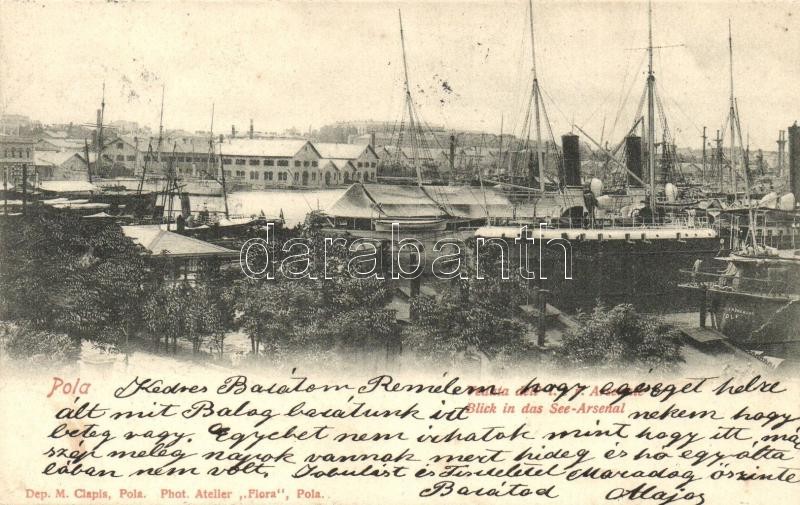 darabanth
Pola
Veduta dell' I. R. Arsenale
Blick in das See-Arsenal
Kedves Barátom Remélem hogy egéséget helre
ált mit Balog barátunk itt nekem hogy
beteg vagy. Egyebet nem irhatok mint hogy itt, már
szép meleg napok vannak mert hideg és hó egy álta
lában nem volt. Jobulást és Tiszteletel Maradog őszinte
Barátod Major
Dep. M. Clapis, Pola. Phot. Atelier „Flora", Pola.